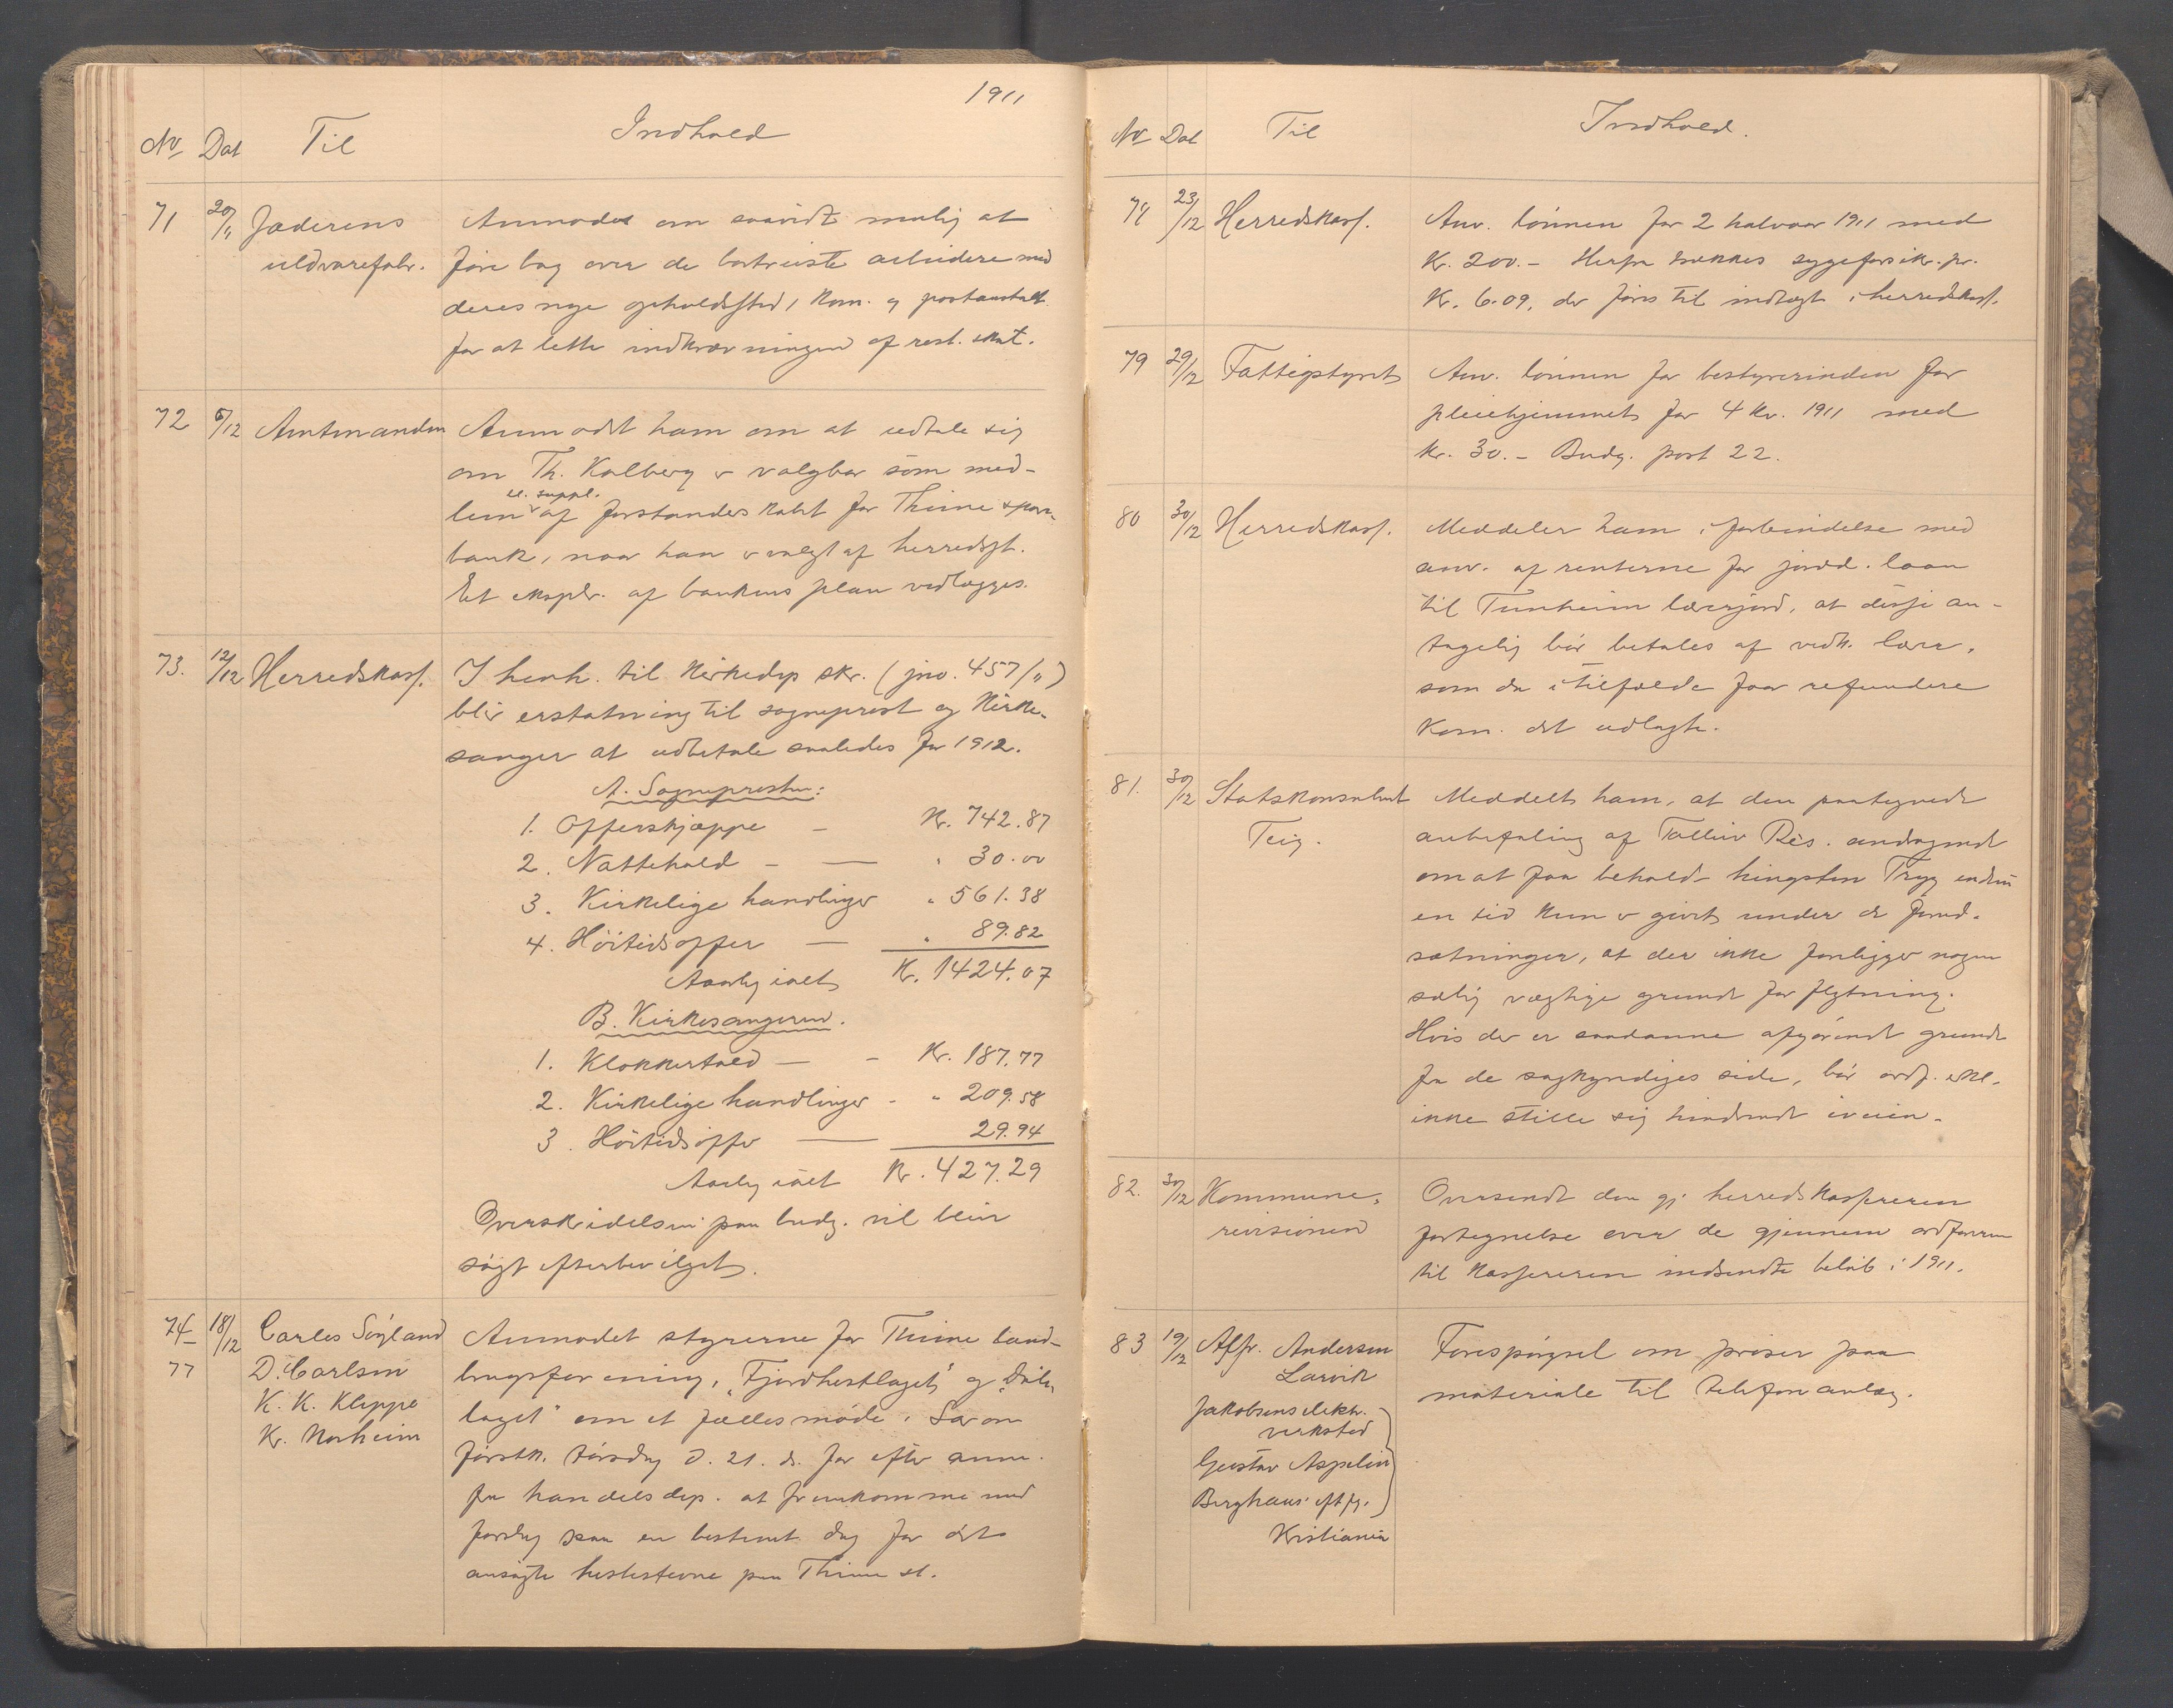 1911
No Dat Til Indhold
71 20/11 Jæderens uldvarefabr.
Anmodet om saavidt mulig at
føre bog over de bortreiste arbeidere med
deres nye opholdssted, kom. og postanstalt
for at lette indkrævningen af rest. skat.
72 6/12 Amtmanden
Anmodet ham om at udtale sig
om Th. Kalberg er valgbar som med-
lem el. suppl. af forstanderskabet for Thime spare-
bank, naar han er valgt af herredsst.
Et expl. af bankens plan vedlægges.
73. 12/12 Herredskass.
I henh. til kirkedep skr. (jno. 457/11)
blir erstatning til sogneprest og kirke-
sanger at udbetale saaledes for 1912.
A. Sognepresten:
1. Offerskjæppe – Kr. 742.87
2. Nattehold – — " 30.00
3. Kirkelige handlinger " 561.38
4. Høitidsoffer — " 89.82
Aarlig ialt Kr. 1424.07
B. Kirkesangeren.
1. Klokkertold — - Kr. 187.77
2. Kirkelige handlinger - " 209.58
3. Høitidsoffer — 29.94
Aarlig ialt Kr. 427.29
Overskridelsen paa budg. vil blive
søgt efterbevilget.
74– 77 18/12 Carles Søyland
D. Carlsen
K. K. Kleppe
Kr. Norheim
Anmodet styrerne for Thime land-
brugsforening, "Fjordhestlaget" og "Døle-
laget" om et fælles møde i
førstk. torsdag d. 21. ds. for efter anm.
fra handelsdep. at fremkomme med
forslag paa en bestemt dag for det
ansøgte hestestevne paa Thime st.
No Dat Til Indhold.
78 23/12 Herredskass.
Anv. lønnen for 2 halvaar 1911 med
Kr. 200.– Herfra trækkes sygeforsikr. pr.
Kr. 6.09, der føres til indtægt i herredskass.
79 29/12 Fattigstyret
Anv. lønnen for bestyrerinden for
pleiehjemmet for 4 kv. 1911 med
kr. 30.– Budg. post 22.
80 30/12 Herredskass.
Meddeler ham i forbindelse med
anv. af renterne for jordd. laan
til Tunheim lærerjord, at disse an-
tagelig bør betales af vedk. lærer,
som da i tilfælde faar refundere
Kom. det udlagte.
81. 30/12 Statskonsulent
Teig.
Meddelt ham, at den paategnede
anbefaling af Tollив Res. andragende
om at faa beholde hingsten Tryg endnu
en tid kun er givet under de forud-
sætninger, at der ikke foreligger nogen
særlig vægtige grunde for flytning.
Hvis der er saadanne afgjørende grunde
fra de sagkyndiges side, bør ordf. skl.
ikke stille sig hindrende iveien.
82. 30/12 Kommune-
revisionen
Oversendt den gj. herredskassereren
fortegnelse over de gjennem ordføreren
til kassereren indsendte beløb i 1911.
83 19/12 Alfr. Andersen
Larvik
Jakobsens elektr.
verksted
Gustav Aspelin
Berghaus' eftfg.
Kristiania
Forespørgsel om priser paa
materiale til telefonanlæg.